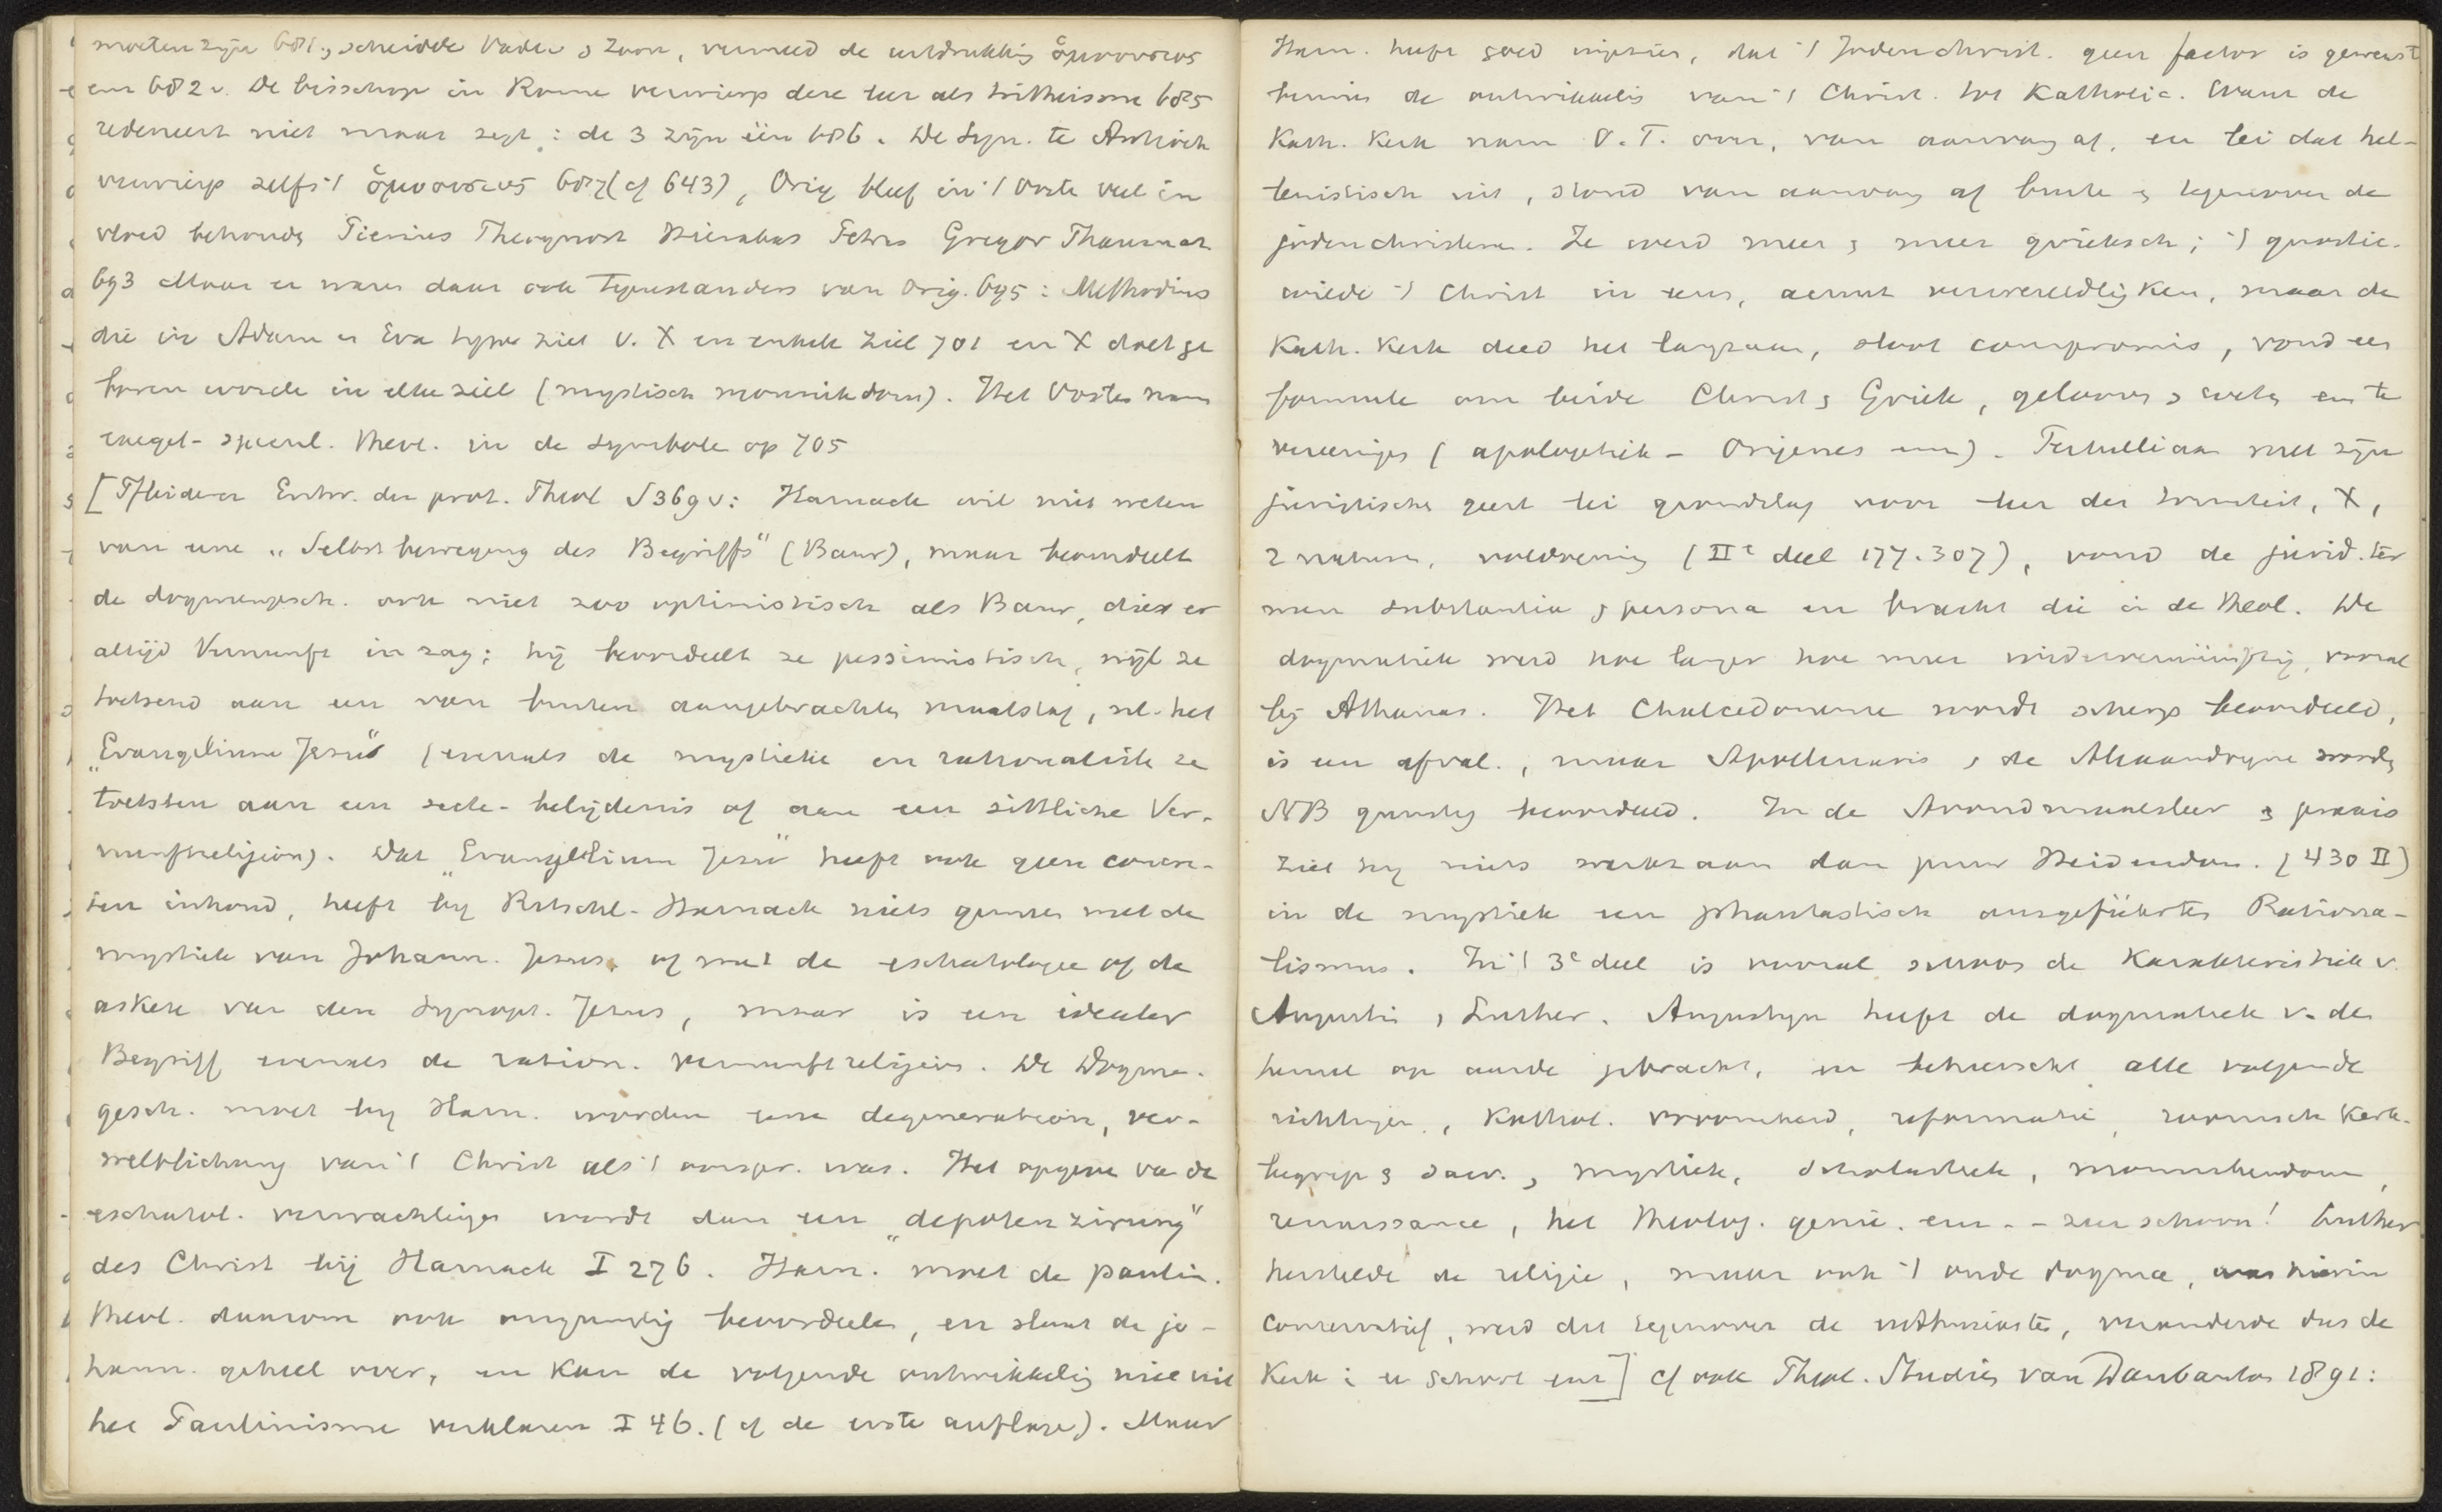 moeten zijn 681, scheidde Vader & Zoon, vermeed de uitdrukking ὁμοουσιος
enz 682v. De bisschop in Rome verwierp deze leer als tritheisme 685
redeneert niet maar zegt: de 3 zijn één 686. De Syn. te Antioch
verwierp zelfs 't ὁμοουσιος 687 (cf 643), Orig bleef in 't Oosten veel in
vloed behouden Pierius Theognost Hierakas Petrus Gregor Thaumat
693 Maar er waren daar ook tegenstanders van Orig. 695: Methodius
die in Adam en Eva type ziet v. X en enkele ziel 701 en X doet ge
boren worden in elke ziel (mystisch monnikdom). Het Oosten nam
exeget-specul. theol. in de symbole op 705
[Pfleiderer Entw. der prot. Theol S 369v: Harnack wil niet weten
van eene „Selbstbewegung des Begriffs" (Baur), maar beoordeelt
de dogmengesch. ook niet zoo optimistisch als Baur, die er
altijd Vernunft in zag; hij beoordeelt ze pessimistisch, wijl ze
toetsend aan een van buiten aangebrachten maatstaf, nl. het
„Evangelium Jesu" (evenals de mystieke en rationalisten ze
toetsten aan een secte-belijdenis of aan een sittliche Ver-
nunftreligion). Dat „Evangelium Jesu" heeft ook geen concre-
ten inhoud, heeft bij Ritschl-Harnack niets gemeen met de
mystiek van Johann. Jesus, of met de eschatologie of de
askese van den Synopt. Jesus, maar is een idealer
Begriff evenals de ration. vernunftreligion. De Dogmen-
gesch. moet bij Harn. worden eene degeneration, ver-
weltlichung van 't Christ als 't oorspr. was. Het opgeven van de
eschatol. verwachtingen wordt dan een „depotenzirung"
des Christ bij Harnack I 276. Harn. moet de paulin.
theol. daarom ook ongunstig beoordeelen, en slaat de jo-
hann. geheel over, en kan de volgende ontwikkeling niet uit
het Paulinisme verklaren I 46. (cf de eerste auflage). Maar
Harn. heeft goed ingezien, dat 't Jodenchrist. geen factor is geweest
binnen de ontwikkeling van 't Christ. tot Katholic. Want de
Kath. Kerk nam O.T. over, van aanvang af, en lei dat hel-
lenistisch uit, stond van aanvang af buiten & tegenover de
jodenchristenen. Ze werd meer & meer grieksch; 't gnostic.
wilde 't Christ in eens, acuut verwereldlijken, maar de
Kath. Kerk deed het langzaam, sloot compromis, vond een
formule om beide Christ & Griek, gelooven & weten enz te
vereenigen (apologetiek - Origenes enz). Tertulliaan met zijn
juristische geest lei grondslag voor leer der triniteit, X,
2 naturen, voldoening (IIe deel 177. 307), vond de jurid. ter
men substantia & persona en bracht die in de theol. De
dogmatiek werd hoe langer hoe meer widervernünftig, vooral
bij Athanas. Het Chalcedonense wordt scherp beoordeeld,
is een afval., maar Apollinaris & de Alexandrynen worden
NB gunstig beoordeeld. In de Avondmaalsleer & praxis
ziet hij niets anders dan puur Heidendom. (430 II)
in de mystiek een phantastisch ausgeführter Rationa-
lismus. In 't 3e deel is vooral schoon de Karakteristiek v.
Augustin & Luther. Augustyn heeft de dogmatiek v. den
hemel op aarde gebracht, en beheerscht alle volgende
richtingen, Kathol. vroomheid, reformatie, roomsch kerk-
begrip & sacr., mystiek, scholastiek, monnikendom,
renaissance, het theolog. genie. enz - - zeer schoon! Luther
herstelde de religie, maar ook 't oude dogma, was hierin
conservatief, werd dit tegenover de enthusiasten, veranderde dus de
Kerk in een school enz] cf ook Theol. Studiën van Daubanton 1891: